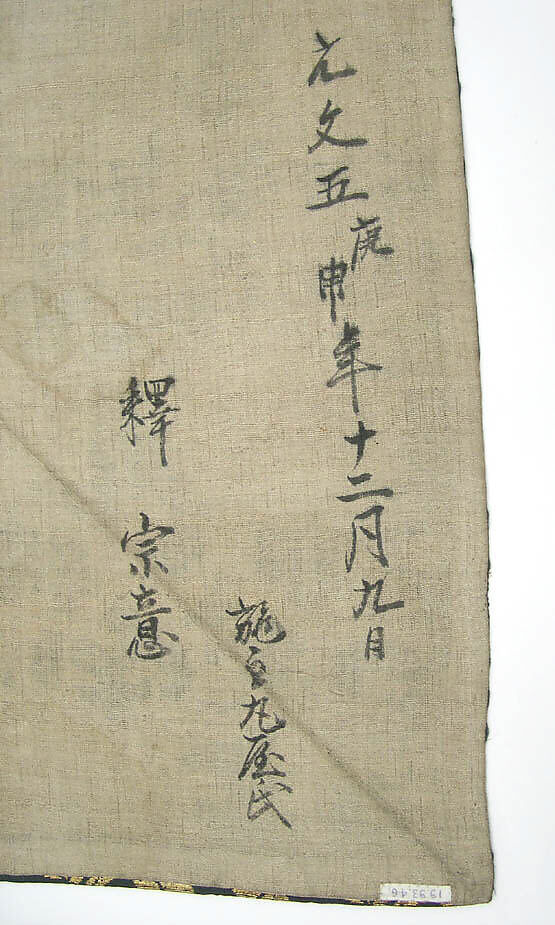 元文五庚申年十二月九日
施主丸屋氏
釋宗意
19.93.46